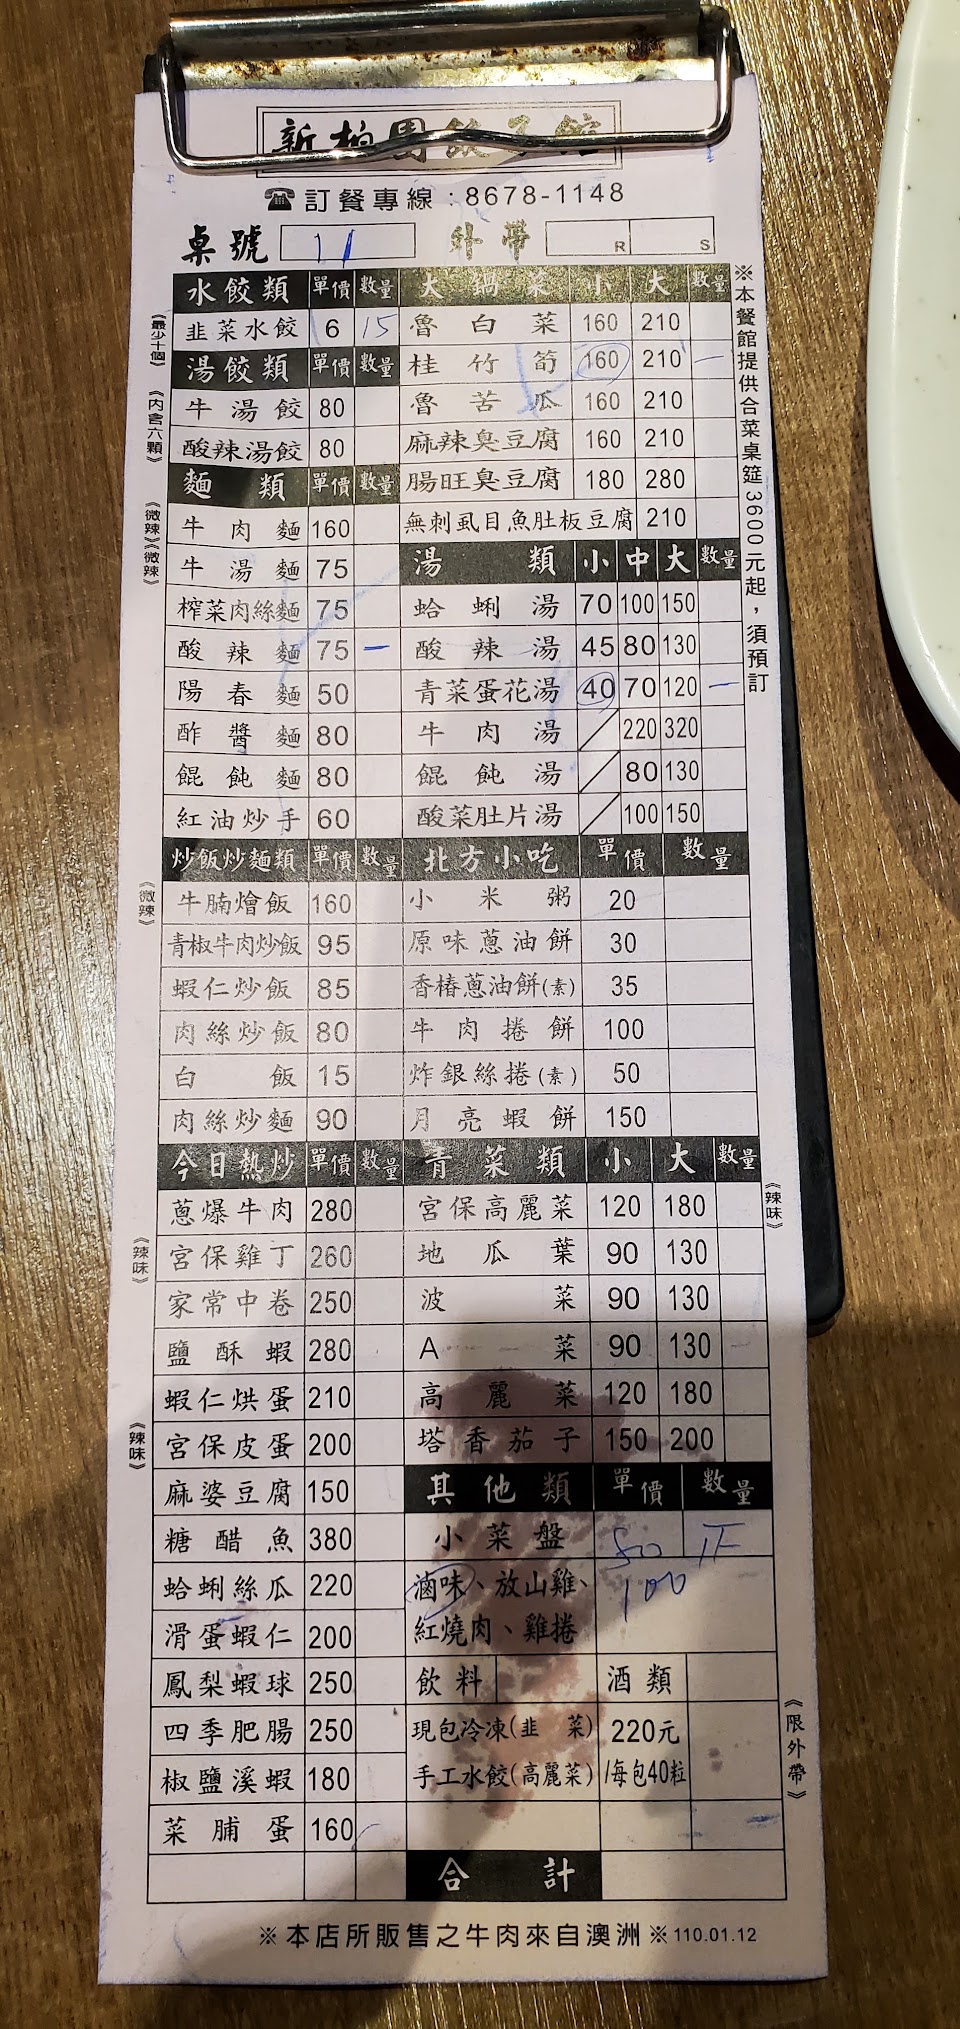 新柏園餃子館
☎訂餐專線：8678-1148
桌號 11 外帶 R S
※本餐館提供合菜桌筵3600元起，須預訂
水餃類 單價 數量
《最少十個》 韭菜水餃 6 15
湯餃類 單價 數量
《內含六顆》
牛湯餃 80
酸辣湯餃 80
麵類 單價 數量
《微辣》《微辣》
牛肉麵 160
牛湯麵 75
榨菜肉絲麵 75
酸辣麵 75 一
陽春麵 50
酢醬麵 80
餛飩麵 80
紅油炒手 60
炒飯炒麵類 單價 數量
《微辣》 牛腩燴飯 160
青椒牛肉炒飯 95
蝦仁炒飯 85
肉絲炒飯 80
白飯 15
肉絲炒麵 90
今日熱炒 單價 數量
蔥爆牛肉 280
《辣味》 宮保雞丁 260
家常中卷 250
鹽酥蝦 280
蝦仁烘蛋 210
《辣味》 宮保皮蛋 200
麻婆豆腐 150
糖醋魚 380
蛤蜊絲瓜 220
滑蛋蝦仁 200
鳳梨蝦球 250
四季肥腸 250
椒鹽溪蝦 180
菜脯蛋 160
大鍋菜 小 大 數量
魯白菜 160 210
桂竹筍 160 210 一
魯苦瓜 160 210
麻辣臭豆腐 160 210
腸旺臭豆腐 180 280
無刺虱目魚肚板豆腐 210
湯類 小 中 大 數量
蛤蜊湯 70 100 150
酸辣湯 45 80 130
青菜蛋花湯 40 70 120 一
牛肉湯 / 220 320
餛飩湯 / 80 130
酸菜肚片湯 / 100 150
北方小吃 單價 數量
小米粥 20
原味蔥油餅 30
香椿蔥油餅(素) 35
牛肉捲餅 100
炸銀絲捲(素) 50
月亮蝦餅 150
青菜類 小 大 數量
宮保高麗菜 120 180 《辣味》
地瓜葉 90 130
波菜 90 130
A菜 90 130
高麗菜 120 180
塔香茄子 150 200
其他類 單價 數量
小菜盤 50
滷味、放山雞、 100
紅燒肉、雞捲
飲料 酒類
現包冷凍(韭菜) 220元
手工水餃(高麗菜) /每包40粒
《限外帶》
合計
※本店所販售之牛肉來自澳洲※110.01.12